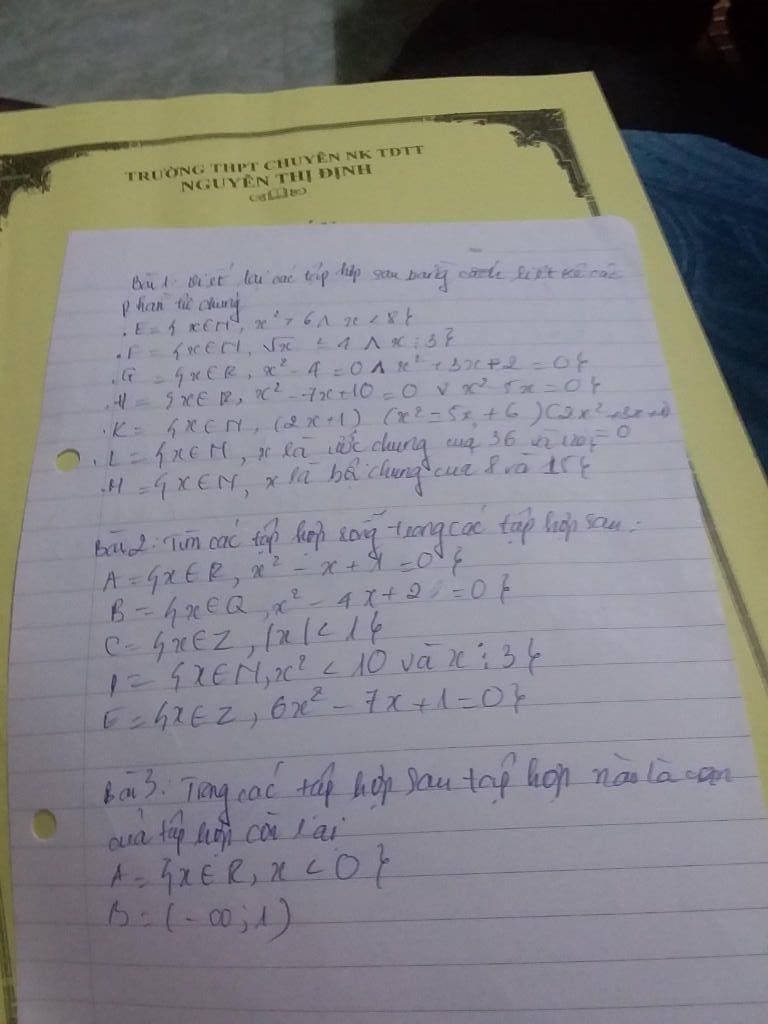 TRƯỜNG THPT CHUYÊN NK TDTT
NGUYỄN THỊ ĐỊNH
Bài 1: viết lại các tập hợp sau bằng cách liệt kê các
phần tử chung
. E = {x∈N, x² > 6 ∧ x < 8}
. F = {x∈N, √x < 4 ∧ x ⋮ 3}
. G = {x∈R, x² - 4 = 0 ∧ x² + 3x + 2 = 0}
. H = {x∈R, x² - 7x + 10 = 0 ∨ x² 5x = 0}
. K = {x∈N, (2x+1) (x² - 5x + 6) (2x²
= 0
. L = {x∈N, x là ước chung của 36 và
. M = {x∈N, x là bội chung của 8 và 15}
Bài 2: Tìm các tập hợp rỗng trong các tập hợp sau:
A = {x∈R, x² - x + 1 = 0}
B = {x∈Q, x² - 4x + 2 = 0}
C = {x∈Z, |x| < 1}
D = {x∈N, x² < 10 và x ⋮ 3}
E = {x∈Z, 6x² - 7x + 1 = 0}
Bài 3: Trong các tập hợp sau tập hợp nào là con
của tập hợp còn lại
A = {x∈R, x < 0}
B = (-∞; 1)